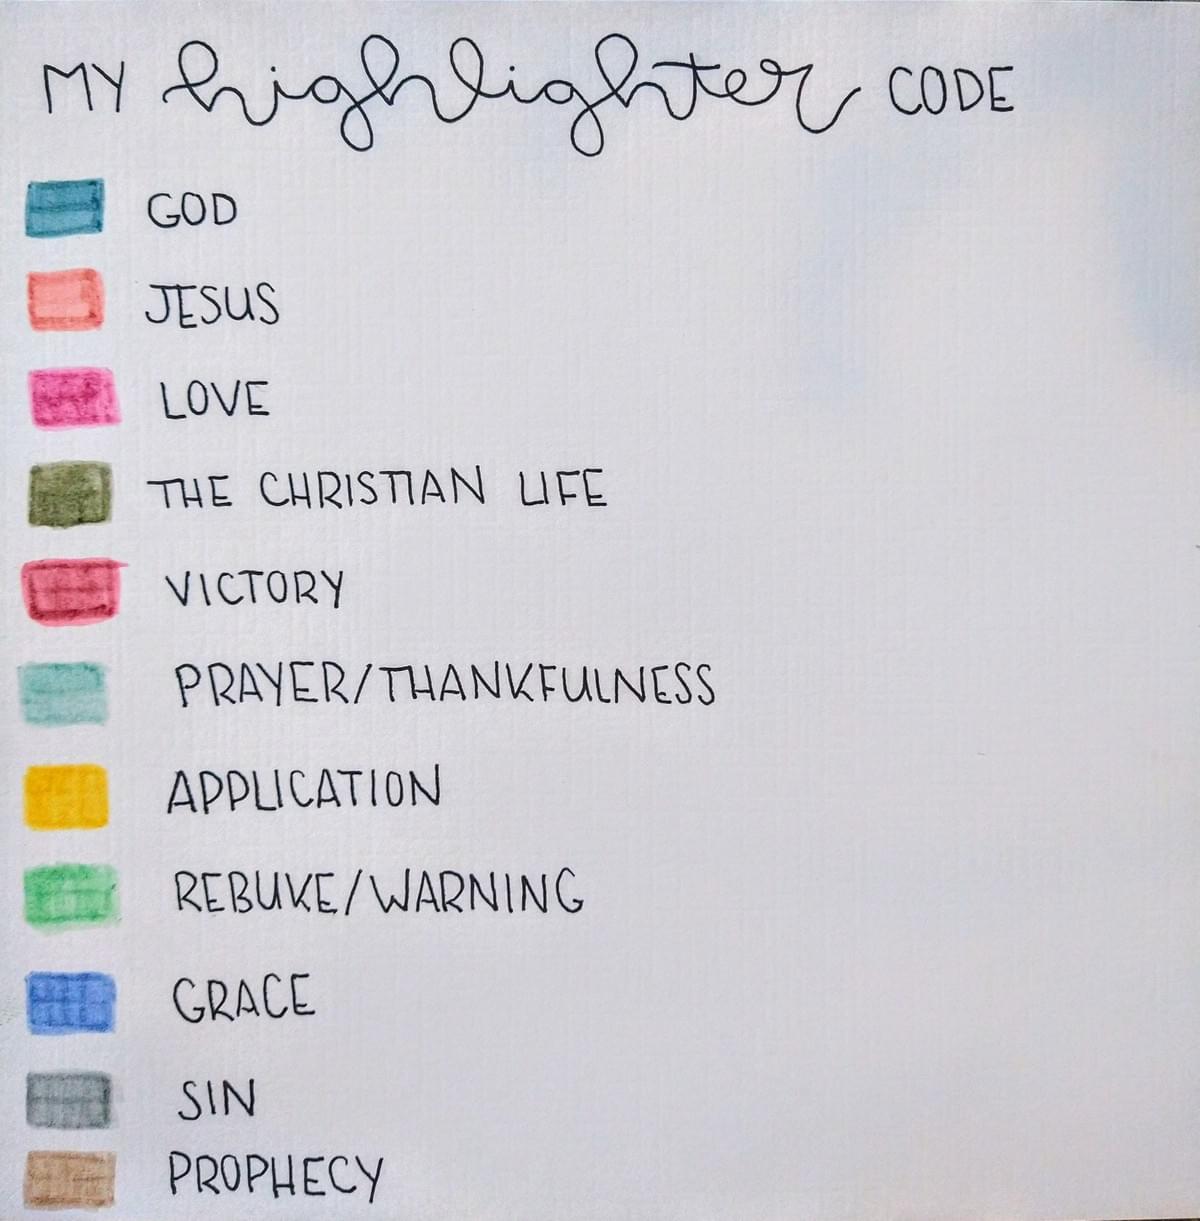 MY highlighter CODE
GOD
JESUS
LOVE
THE CHRISTIAN LIFE
VICTORY
PRAYER/THANKFULNESS
APPLICATION
REBUKE/WARNING
GRACE
SIN
PROPHECY